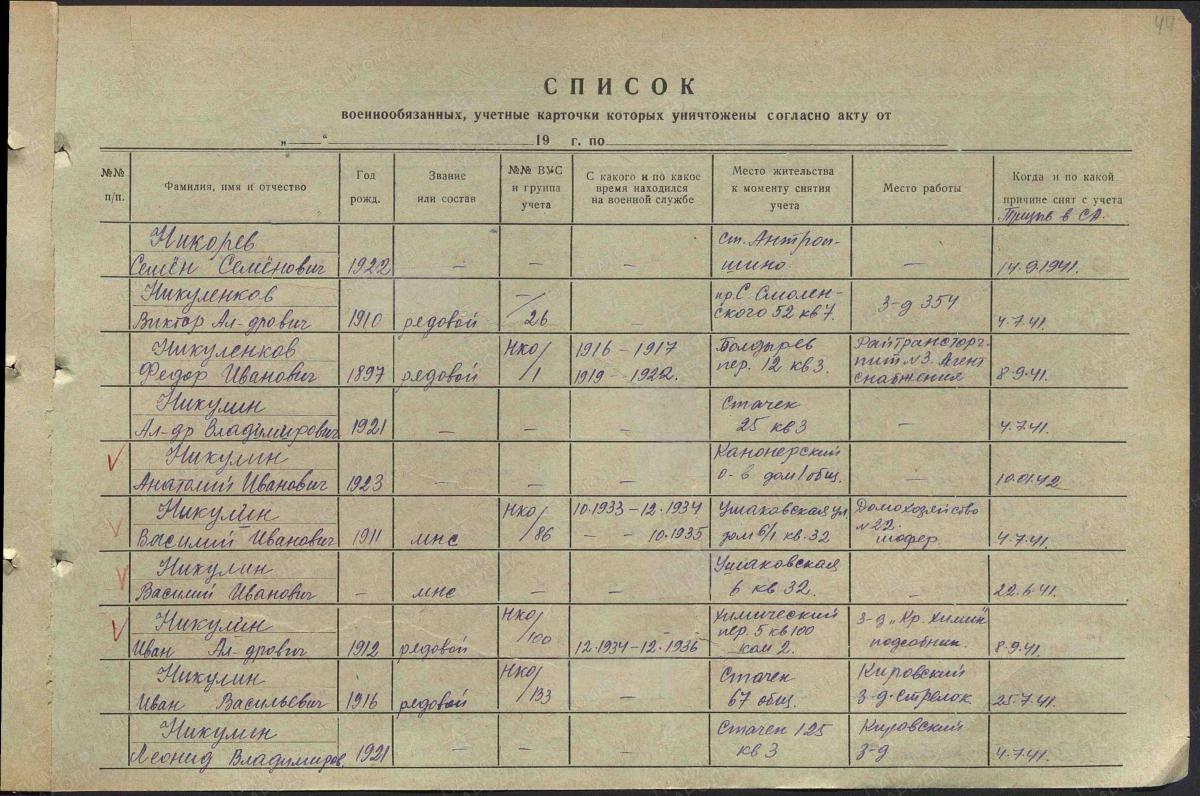 44
СПИСОК
военнообязанных, учетные карточки которых уничтожены согласно акту от
„ “ 19 г. по
№№ п/п. Фамилия, имя и отчество Год рожд. Звание или состав №№ ВУС и группа учета С какого и по какое время находился на военной службе Место жительства к моменту снятия учета Место работы Когда и по какой причине снят с учета
Призыв в СА.
Никорев ст. Антроп-
Семён Семёнович 1922 — — — шино — 14.9.1941.
Никуленков — пр. С. Смолен-
Виктор Ал-дрович 1910 редовой /26 — ского 52 кв 7. З-д 354 4.7.41.
Никуленков НКО/ 1916 – 1917 Болдырев Райтрансторг-
пер. 12 кв 3. пит №3. Агент
Федор Иванович 1897 редовой 1 1919 – 1922. снабжения 8.9.41.
Никулин Стачек
Ал-др Владимирович 1921 — — — 25 кв 3 — 4.7.41.
Никулин Канонерский
Анатолий Иванович 1923 — — — о-в дом 1 общ. — 10.01.42
Никулин НКО/ 10.1933 – 12.1934 Ушаковская ул Домохозяйство
№ 22.
Василий Иванович 1911 мнс 86 — — 10.1935 дом 6/1 кв. 32 шофер. 4.7.41.
Никулин Ушаковская
Василий Иванович — мнс — — 6 кв 32. — 22.6.41.
Никулин НКО/ Химический З-д „Кр. Химик"
пер. 5 кв 100
Иван Ал-дрович 1912 редовой 100 12.1934–12.1936 ком 2. подсобник. 8.9.41.
Никулин НКО/ Стачек Кировский
Иван Васильевич 1916 редовой 133 — 67 общ. з-д. стрелок. 25.7.41.
Никулин Стачек 125 Кировский
Леонид Владимиров. 1921 — — — кв 3 з-д 4.7.41.